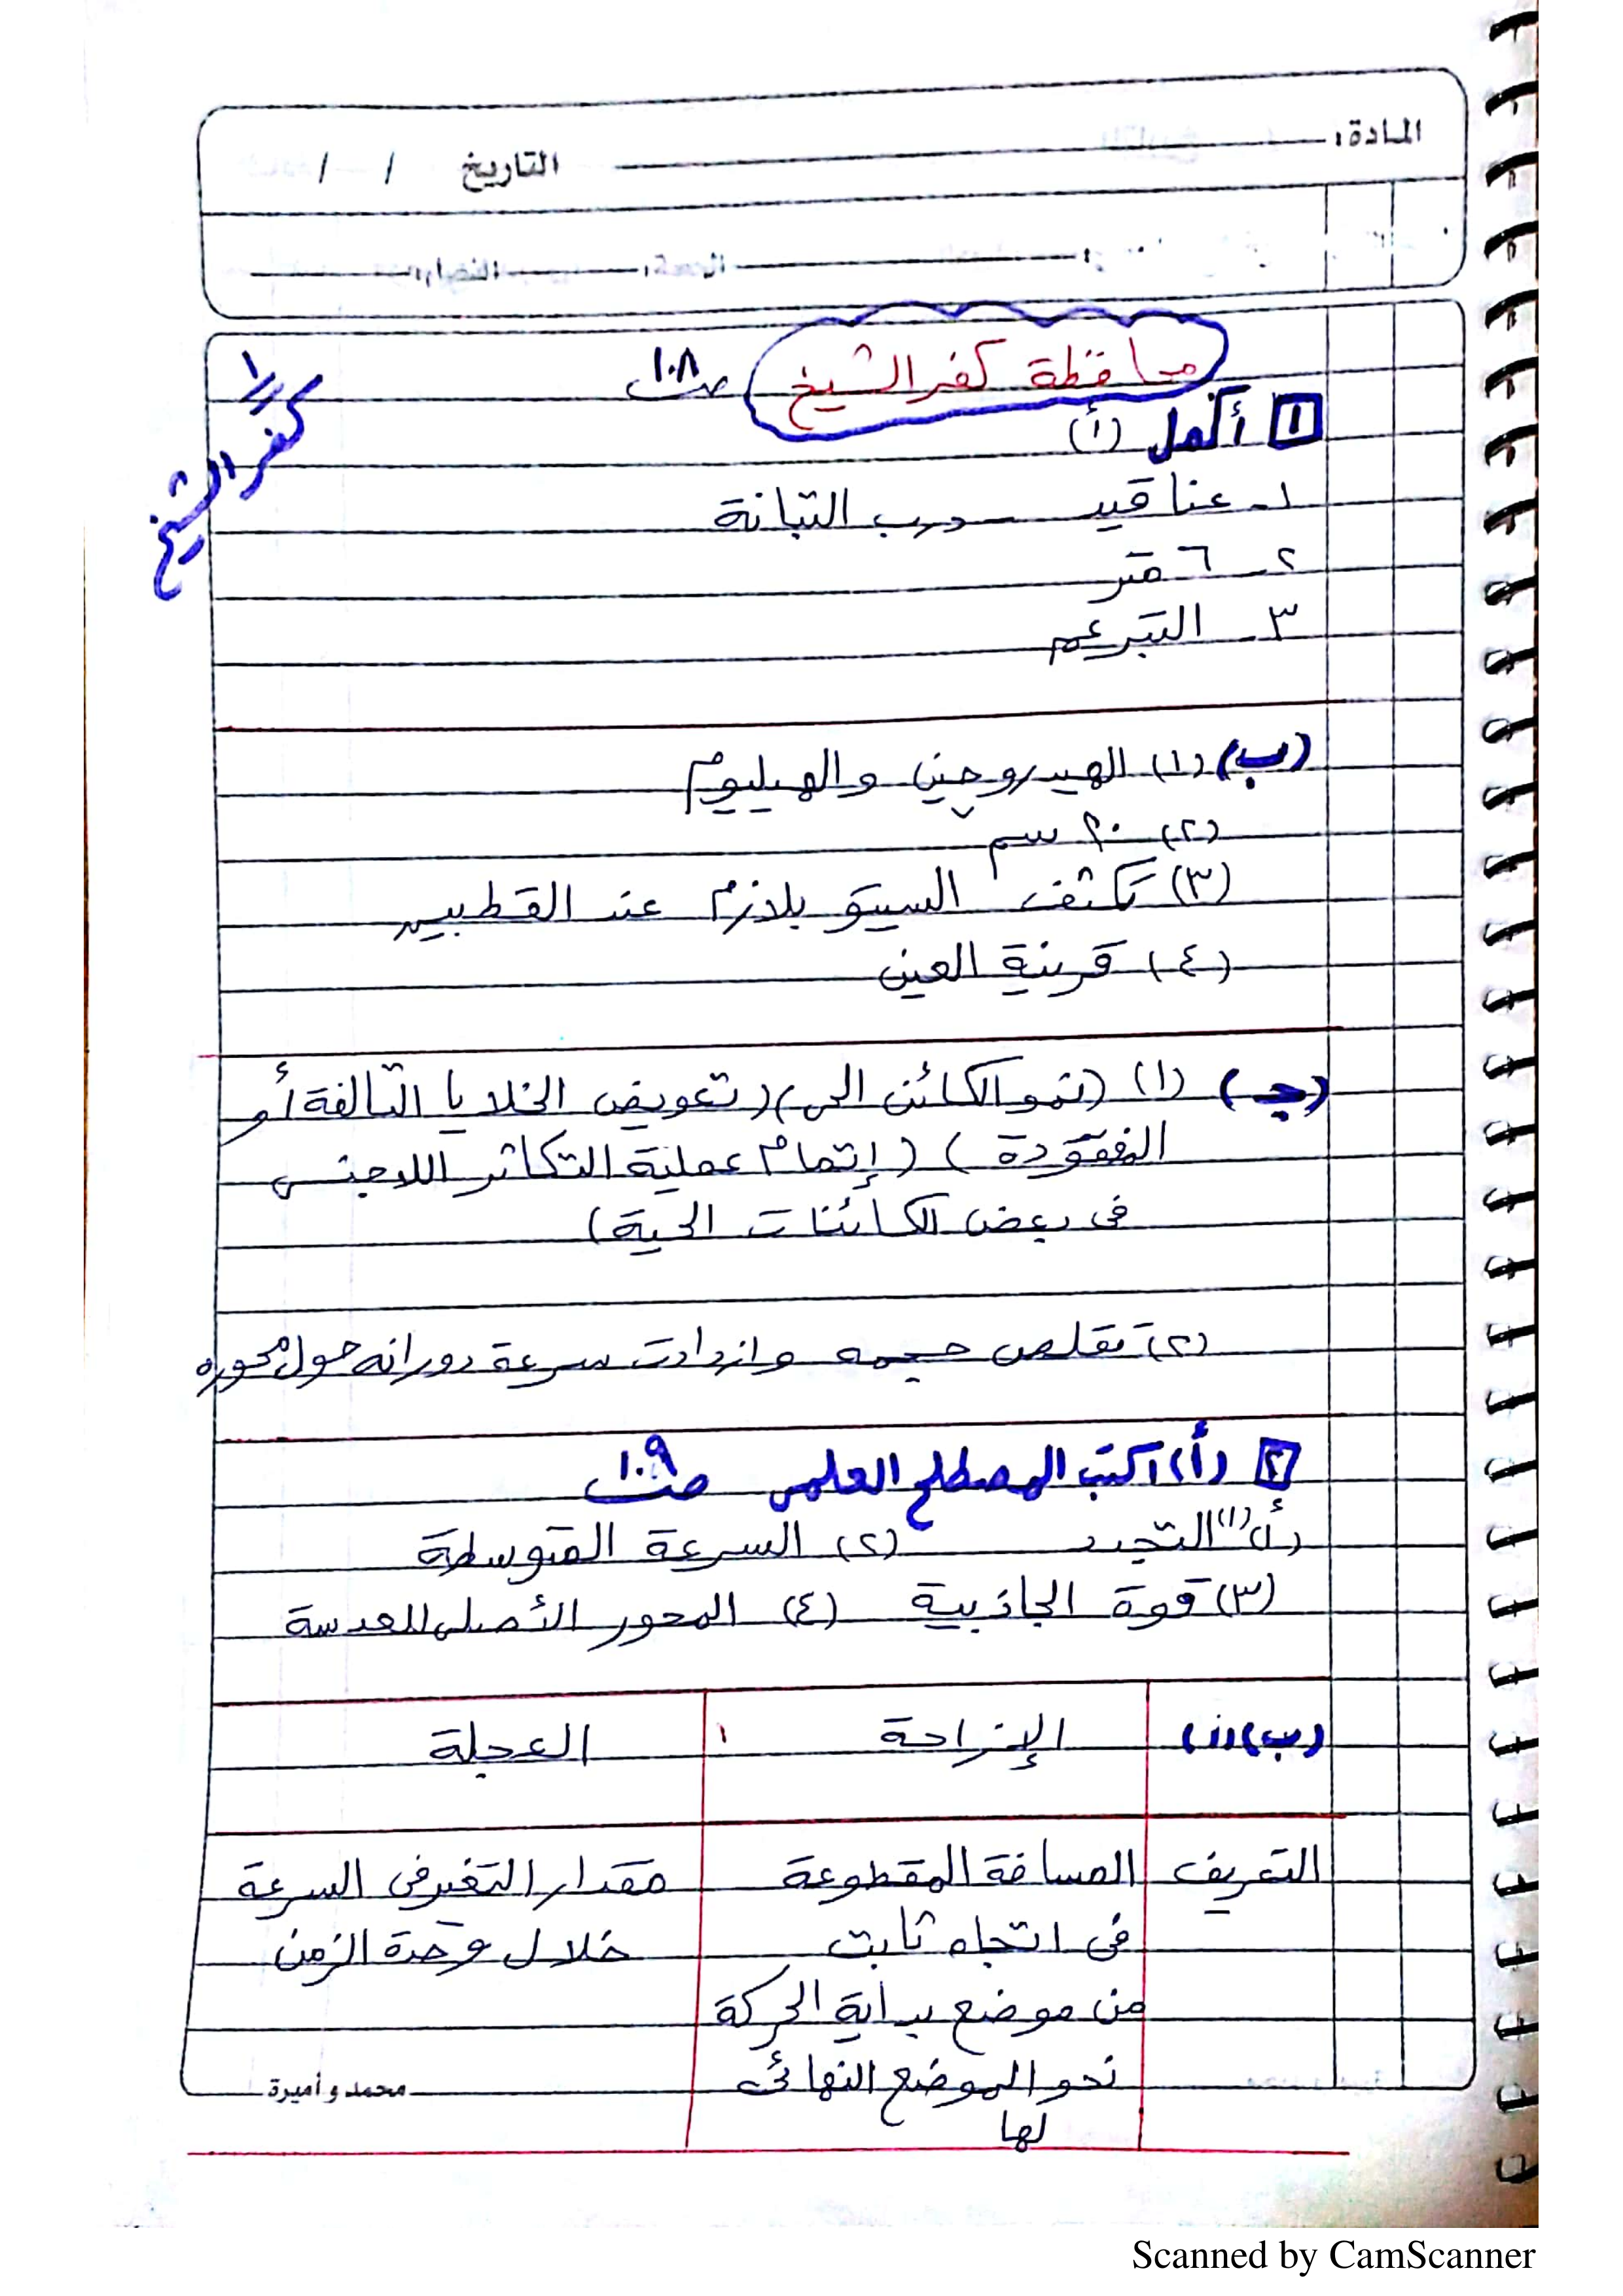 المادة:
التاريخ / /
محافظة كفر الشيخ صـ ١٠٨
١ كفر الشيخ
١ أكمل (أ)
١- عناقيد - درب التبانة
٢- ٦ متر
٣- التبرعم
(ب) (١) الهيدروجين والهيليوم
(٢) ٢٠ سم
(٣) تكثف السيتوبلازم عند القطبين
(٤) قرنية العين
(جـ) (١) (نمو الكائن الحى) (تعويض الخلايا التالفة أو
المفقودة) (إتمام عملية التكاثر اللاجنسى
فى بعض الكائنات الحية)
(٢) تقلص حجمه وازدادت سرعة دورانه حول محوره
٢ (أ) اكتب المصطلح العلمى صـ ١٠٩
(أ) (١) التجدد (٢) السرعة المتوسطة
(٣) قوة الجاذبية (٤) المحور الأصلى للعدسة
(ب) (١) الإزاحة العجلة
التعريف المسافة المقطوعة مقدار التغير فى السرعة
فى اتجاه ثابت خلال وحدة الزمن
من موضع بداية الحركة
نحو الموضع النهائى
لها
محمد و أميرة
Scanned by CamScanner